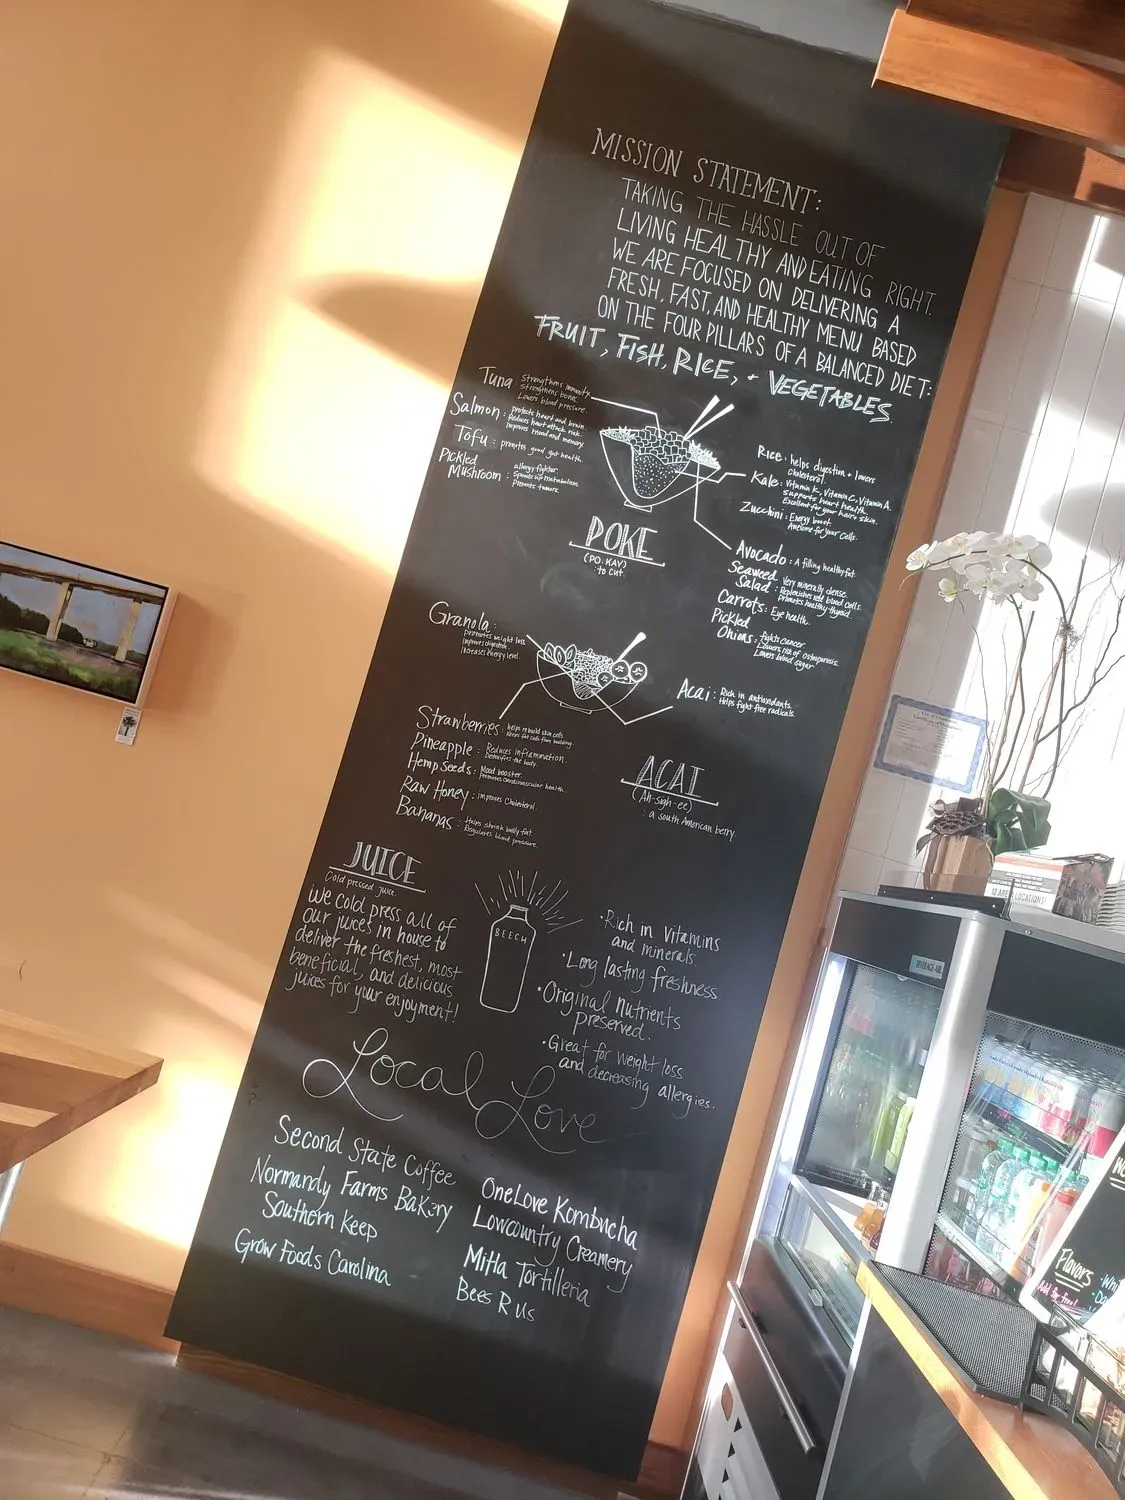 MISSION STATEMENT:
TAKING THE HASSLE OUT OF
LIVING HEALTHY AND EATING RIGHT.
WE ARE FOCUSED ON DELIVERING A
FRESH, FAST, AND HEALTHY MENU BASED
ON THE FOUR PILLARS OF A BALANCED DIET:
FRUIT, FISH, RICE, + VEGETABLES.
Tuna: Strengthens immunity.
Strengthens bones.
Lowers blood pressure.
Salmon: protects heart and brain.
Reduces heart attack risk.
Improves mood and memory.
Tofu: promotes good gut health.
Pickled
Mushroom: allergy fighter.
Speeds up metabolism.
Prevents tumors.
Rice: helps digestion + lowers
cholesterol.
Kale: Vitamin K, Vitamin C, Vitamin A.
supports heart health.
Excellent for your hair + skin.
Zucchini: Energy boost.
Awesome for your cells.
Avocado: A filling healthy fat.
Seaweed
Salad: Very minerally dense.
Replenishes red blood cells.
Promotes healthy thyroid.
Carrots: Eye health.
Pickled
Onions: fights cancer.
Lowers risk of osteoporosis.
Lowers blood sugar
POKE
(PO-KAY)
: to cut.
Granola:
promotes weight loss
improves digestion.
increases energy level.
Acai: Rich in antioxidants.
Helps fight free radicals.
Strawberries: helps rebuild skin cells.
Keeps fat cells from building.
Pineapple: Reduces inflammation.
Detoxifies the body.
Hemp Seeds: Mood booster.
Promotes cardiovascular health.
Raw Honey: improves Cholesterol.
Bananas: Helps shrink belly fat.
Regulates blood pressure.
ACAI
(Ah-sigh-ee)
: a South American berry.
JUICE
Cold pressed juice.
we cold press all of
our juices in house to
deliver the freshest, most
beneficial, and delicious
juices for your enjoyment!
BEECH
• Rich in vitamins
and minerals.
• Long lasting freshness.
• Original nutrients
preserved.
• Great for weight loss
and decreasing allergies.
Local Love
Second State Coffee
Normandy Farms Bakery
Southern Keep
Grow Foods Carolina
One Love Kombucha
Lowcountry Creamery
Mitla Tortilleria
Bees R Us
BEVERAGE-AIR
12 AREA LOCATIONS!
Flavors